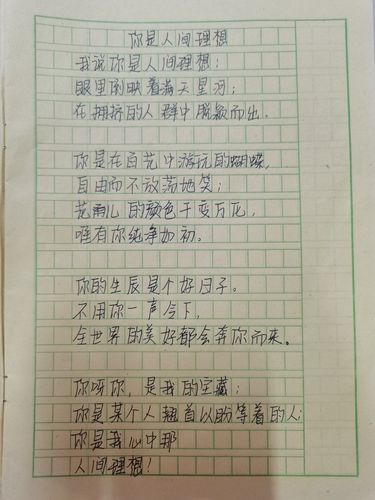 你是人间理想
我说你是人间理想；
眼里倒映着满天星河；
在拥挤的人群中脱颖而出。
你是在百花中游玩的蝴蝶，
自由而不放荡地笑；
花雨儿的颜色千变万化，
唯有你纯净如初。
你的生辰是个好日子。
不用你一声令下，
全世界的美好都会奔你而来。
你呀你，是我的宝藏；
你是某个人翘首以盼等着的人；
你是我心中那
人间理想！